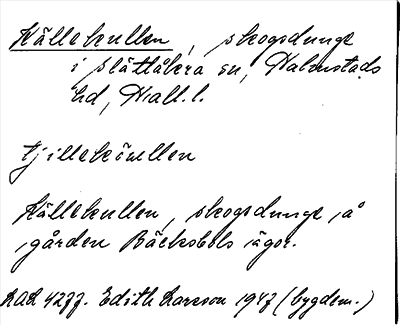 Källekullen, skogsdunge
i Slättåkra sn, Halmstads
hd, Hall. l.
tjilleköullen
Källekullen, skogsdunge, å
gården Bäcksbols ägor.
Edith Larsson 1947 (bygdem.)